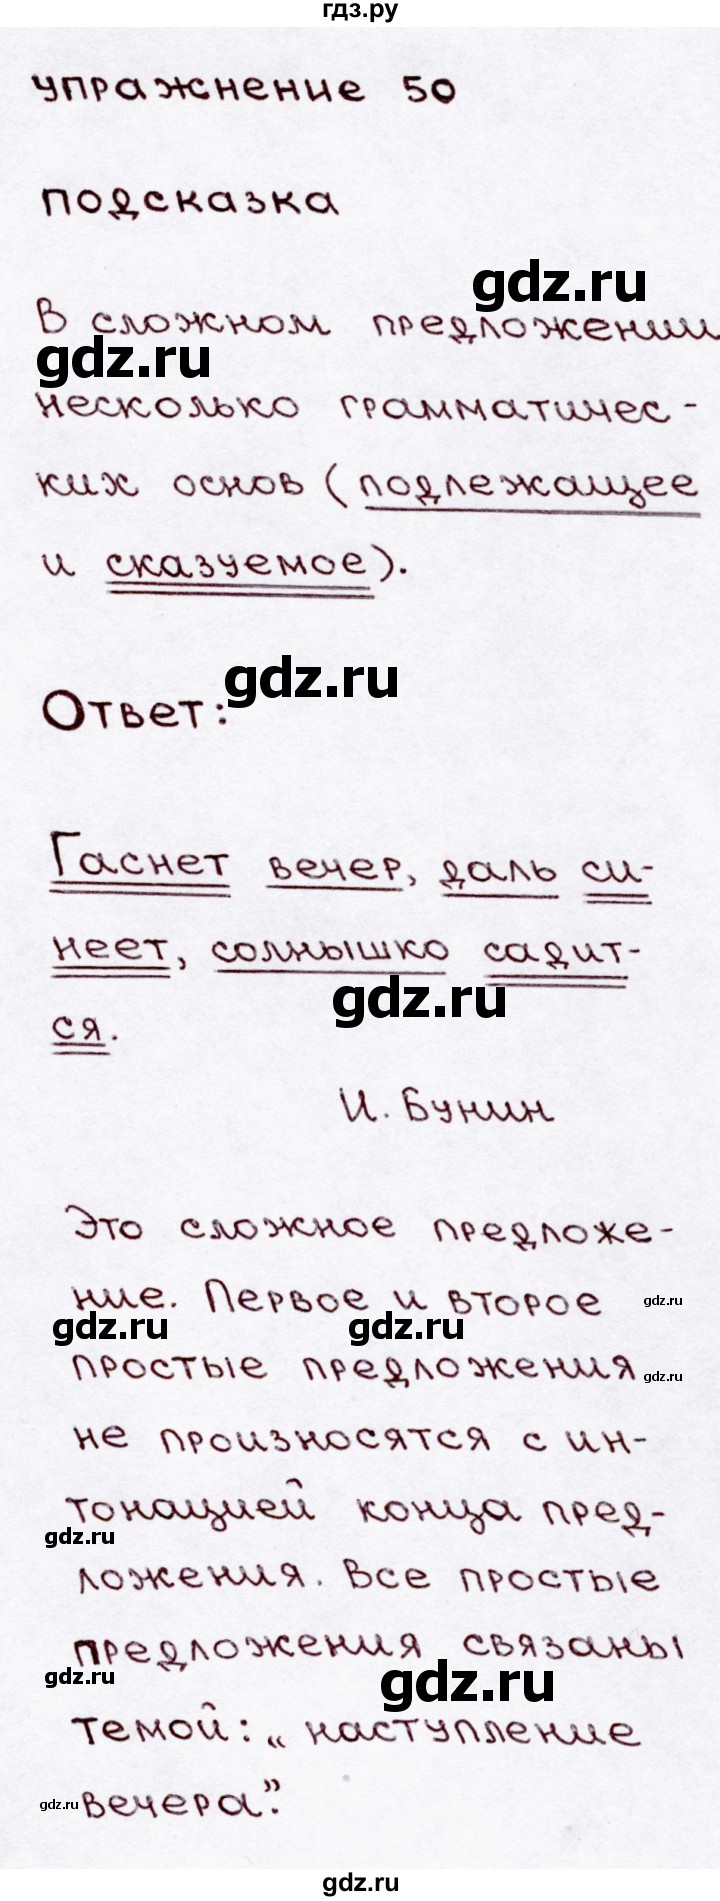 гдз.ру
упражнение 50
подсказка
gdz.ru
В сложном предложении
gdz.ru
несколько грамматичес-
ких основ (подлежащее
и сказуемое).
gdz.ru
Ответ:
Гаснет вечер, даль си-
неет, солнышко садит-
gdz.ru
ся.
И. Бунин
Это сложное предложе-
ние. Первое и второе
gdz.ru
gdz.ru gdz.ru
простые предложения
gdz.ru
не произносятся с ин-
тонацией конца пред-
gdz.ru
ложения. Все простые
предложения связаны
gdz.ru
gdz.ru
темой: „наступление
gdz.ru
вечера”.
gdz.ru